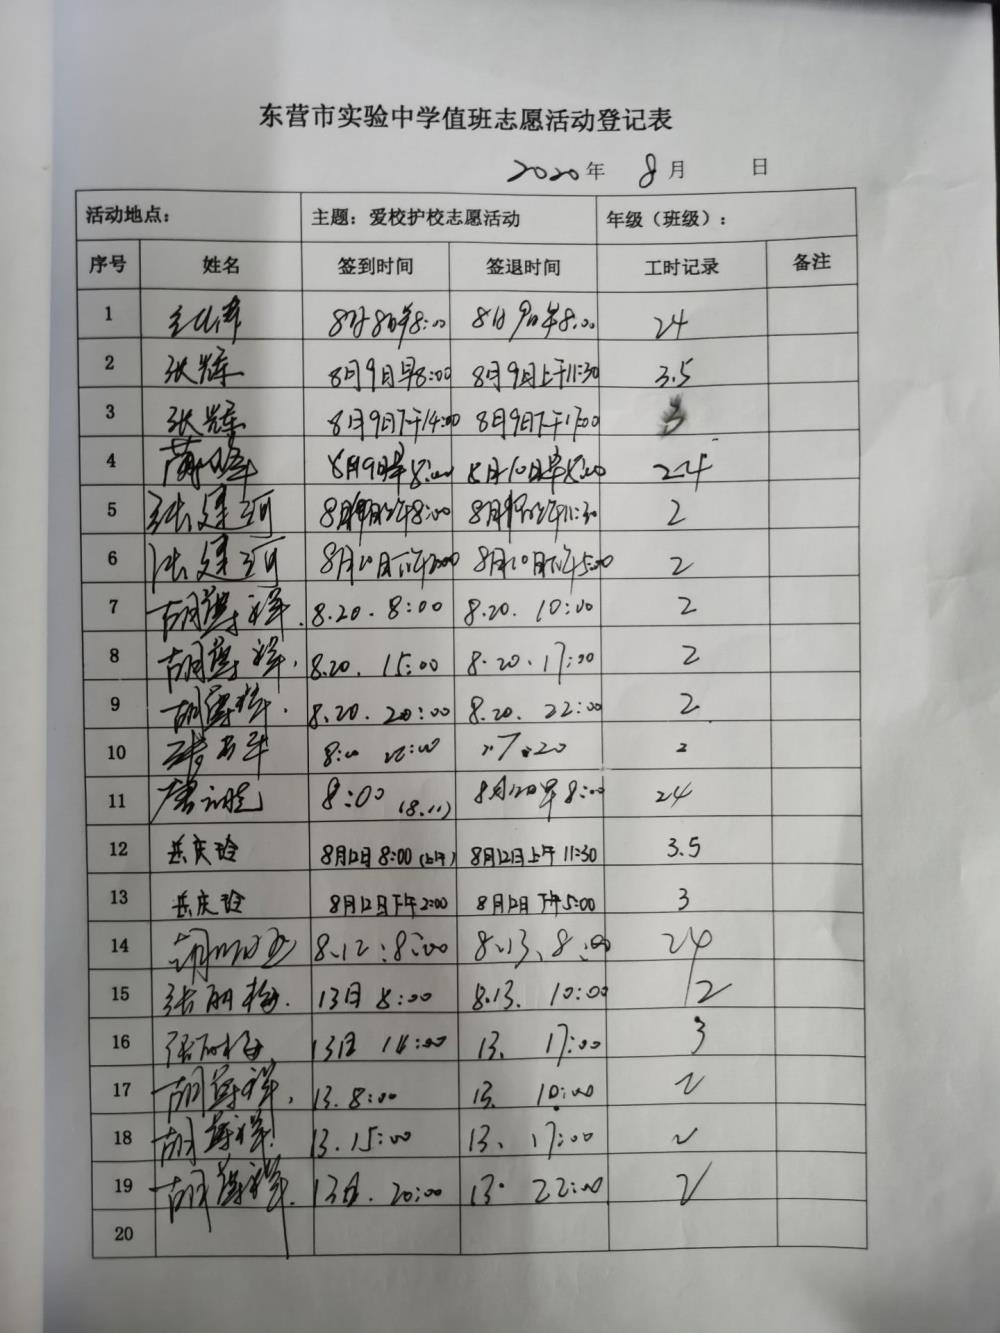 东营市实验中学值班志愿活动登记表
2020年 8月 日
活动地点： 主题：爱校护校志愿活动 年级（班级）：
序号 姓名 签到时间 签退时间 工时记录 备注
1 8月8日早8:00 8月9日早8:00 24
2 张辉 8月9日早8:00 8月9日上午11:30 3.5
3 张辉 8月9日下午14:00 8月9日下午17:00 3
4 8月9日早8:00 8月10日早8:00 24
5 张建河 8:00 11:30 2
6 张建河 8月10日下午2:00 8月10日下午5:00 2
7 8.20. 8:00 8.20. 10:00 2
8 8.20. 15:00 8.20.17:00 2
9 8.20. 20:00 8.20. 22:00 2
10 8:00 20 2
11 8:00 (8.11) 8月12日早8:00 24
12 岳庆玲 8月12日8:00(上午) 8月12日上午11:30 3.5
13 岳庆玲 8月12日下午2:00 8月12日下午5:00 3
14 8.12:8:00 8.13、8:00 24
15 张丽梅. 13日 8:00 8.13. 10:00 2
16 张丽梅 13日 14:00 13. 17:00 3
17 13.8:00 13. 10:00 2
18 13.15:00 13. 17:00 2
19 13日. 20:00 13. 22:00 2
20